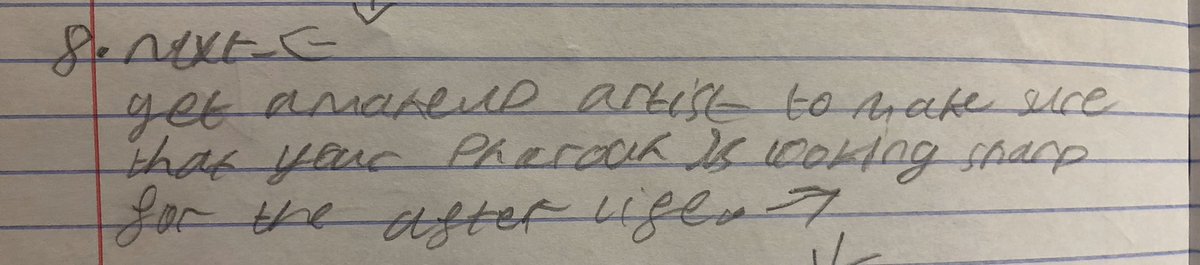 8. next ←
get a makeup artist to make sure
that your Pharoah is looking sharp
for the after life. →